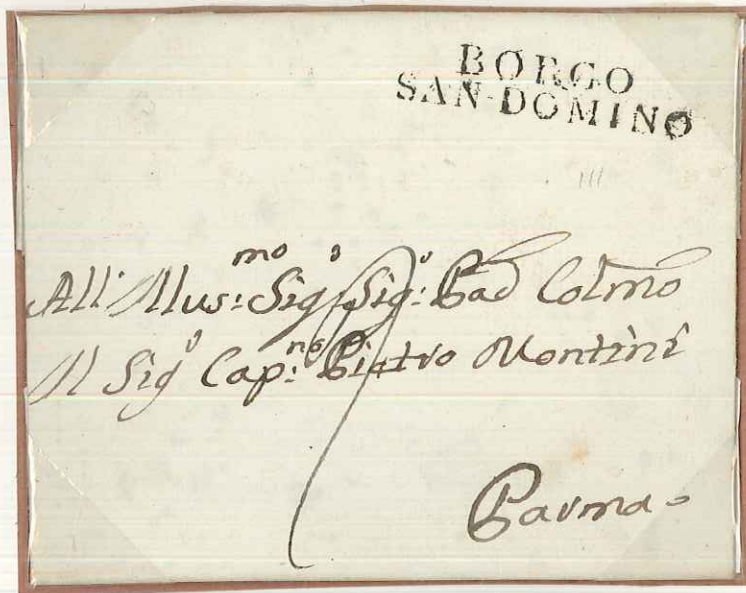 BORGO
SAN-DOMINO
All' Illus:mo Sigo Sigo: Pad Colmo
Il Sigo Cap:no Pietro Montini
Parma=